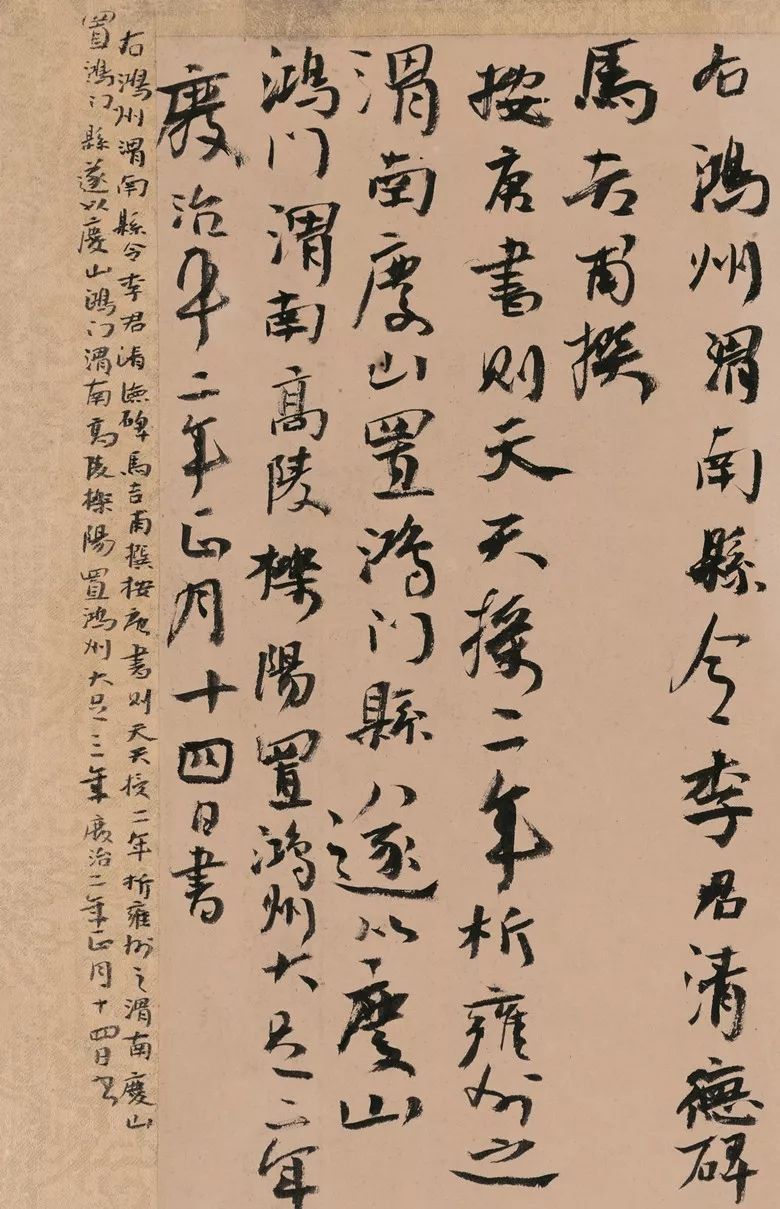 右鴻州渭南縣令李君清德碑
馬吉甫撰
按唐書則天天授二年析雍州之
渭南慶山置鴻門縣遂以慶山
鴻門渭南高陵櫟陽置鴻州大足二年
廢治平二年正月十四日書
右鴻州渭南縣令李君清德碑馬吉甫撰按唐書則天天授二年析雍州之渭南慶山
置鴻門縣遂以慶山鴻門渭南高陵櫟陽置鴻州大足二年廢治二年正月十四日書